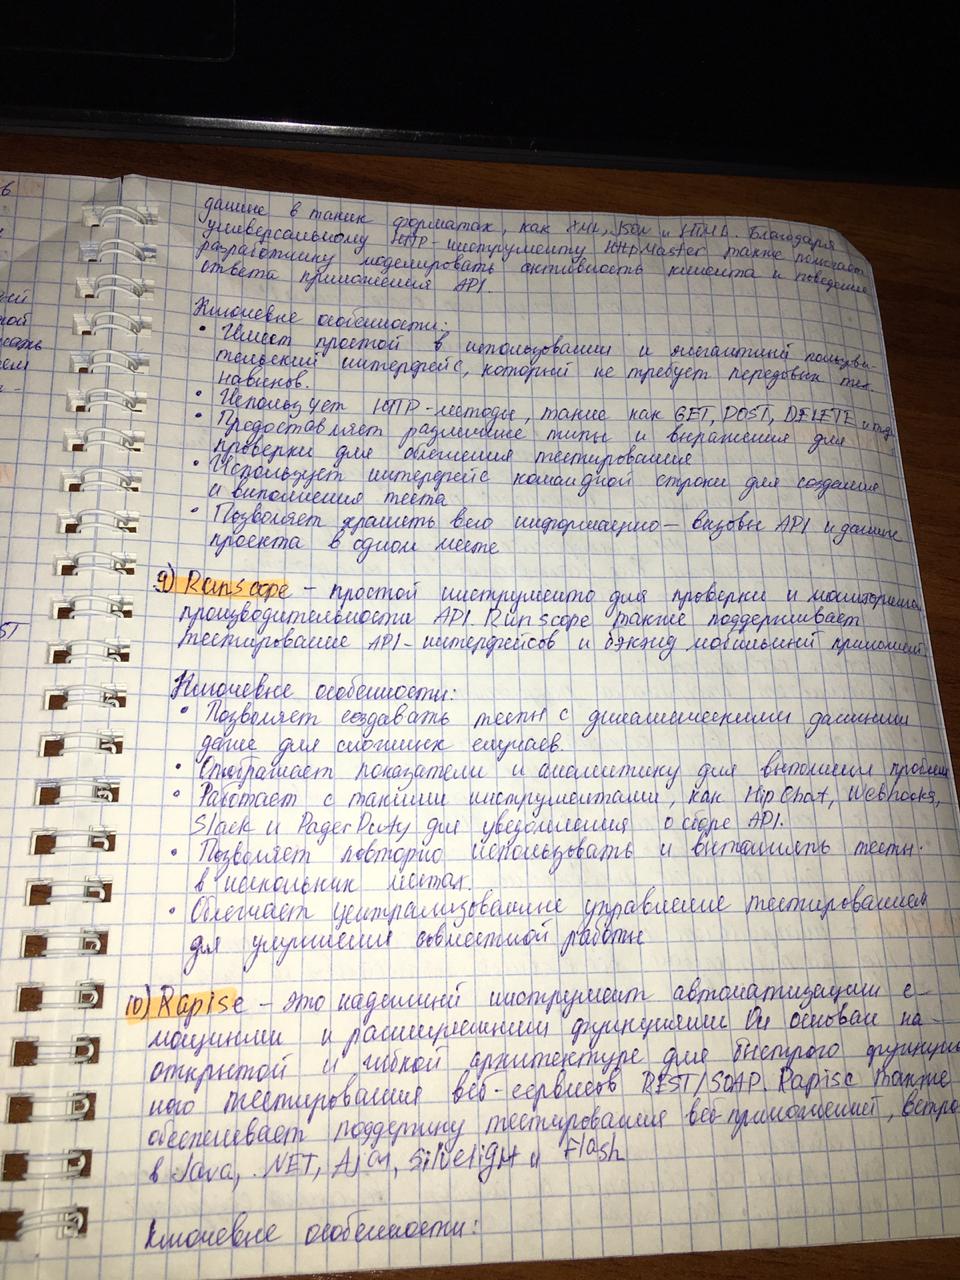 данные в таких форматах, как XML, JSON и HTML. Благодаря
универсальному HTTP-инструменту HttpMaster также помогает
разработчику моделировать активность клиента и поведение
ответа приложения API.
Ключевые особенности:
• Имеет простой в использовании и элегантный пользова-
тельский интерфейс, который не требует передовых тех.
навыков.
• Использует HTTP-методы, такие как GET, POST, DELETE и т.д.
• Предоставляет различные типы и выражения для
проверки для облегчения тестирования
• Использует интерфейс командной строки для создания
и выполнения теста
• Позволяет хранить всю информацию – вызовы API и данные
проекта в одном месте
9) Runscope – простой инструмент для проверки и мониторинга
производительности API. Runscope также поддерживает
тестирование API-интерфейсов и бэкэнд мобильный приложений
Ключевые особенности:
• Позволяет создавать тесты с динамическими данными
даже для сложных случаев.
• Отображает показатели и аналитику для проблем
• Работает с такими инструментами, как HipChat, Webhooks,
Slack и PagerDuty для уведомления о сбое API.
• Позволяет повторно использовать и выполнять тесты
в нескольких местах.
• Облегчает централизованное управление тестированием
для улучшения совместной работы
10) Rapise – это надежный инструмент автоматизации с
мощными и расширенными функциями Он основан на
открытой и гибкой архитектуре для быстрого функцио
ного тестирования веб-сервисов REST/SOAP. Rapise также
обеспечивает поддержку тестирования веб-приложений, встро
в Java, .NET, Ajax, Silverlight и Flash
Ключевые особенности: